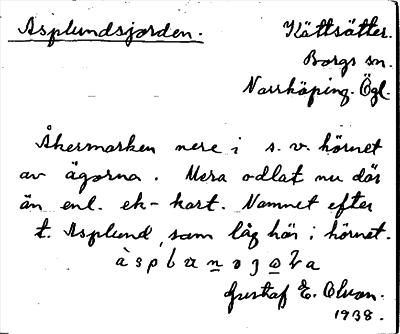 Asplundsjorden. Kättsätter.
Borgs sn.
Norrköping. Ögl.
Åkermarken nere i s. v. hörnet
av ägorna. Mera odlat nu där
än enl. ek-kart. Namnet efter
t. Asplund, som låg här i hörnet.
Gustaf E. Olson.
1938.